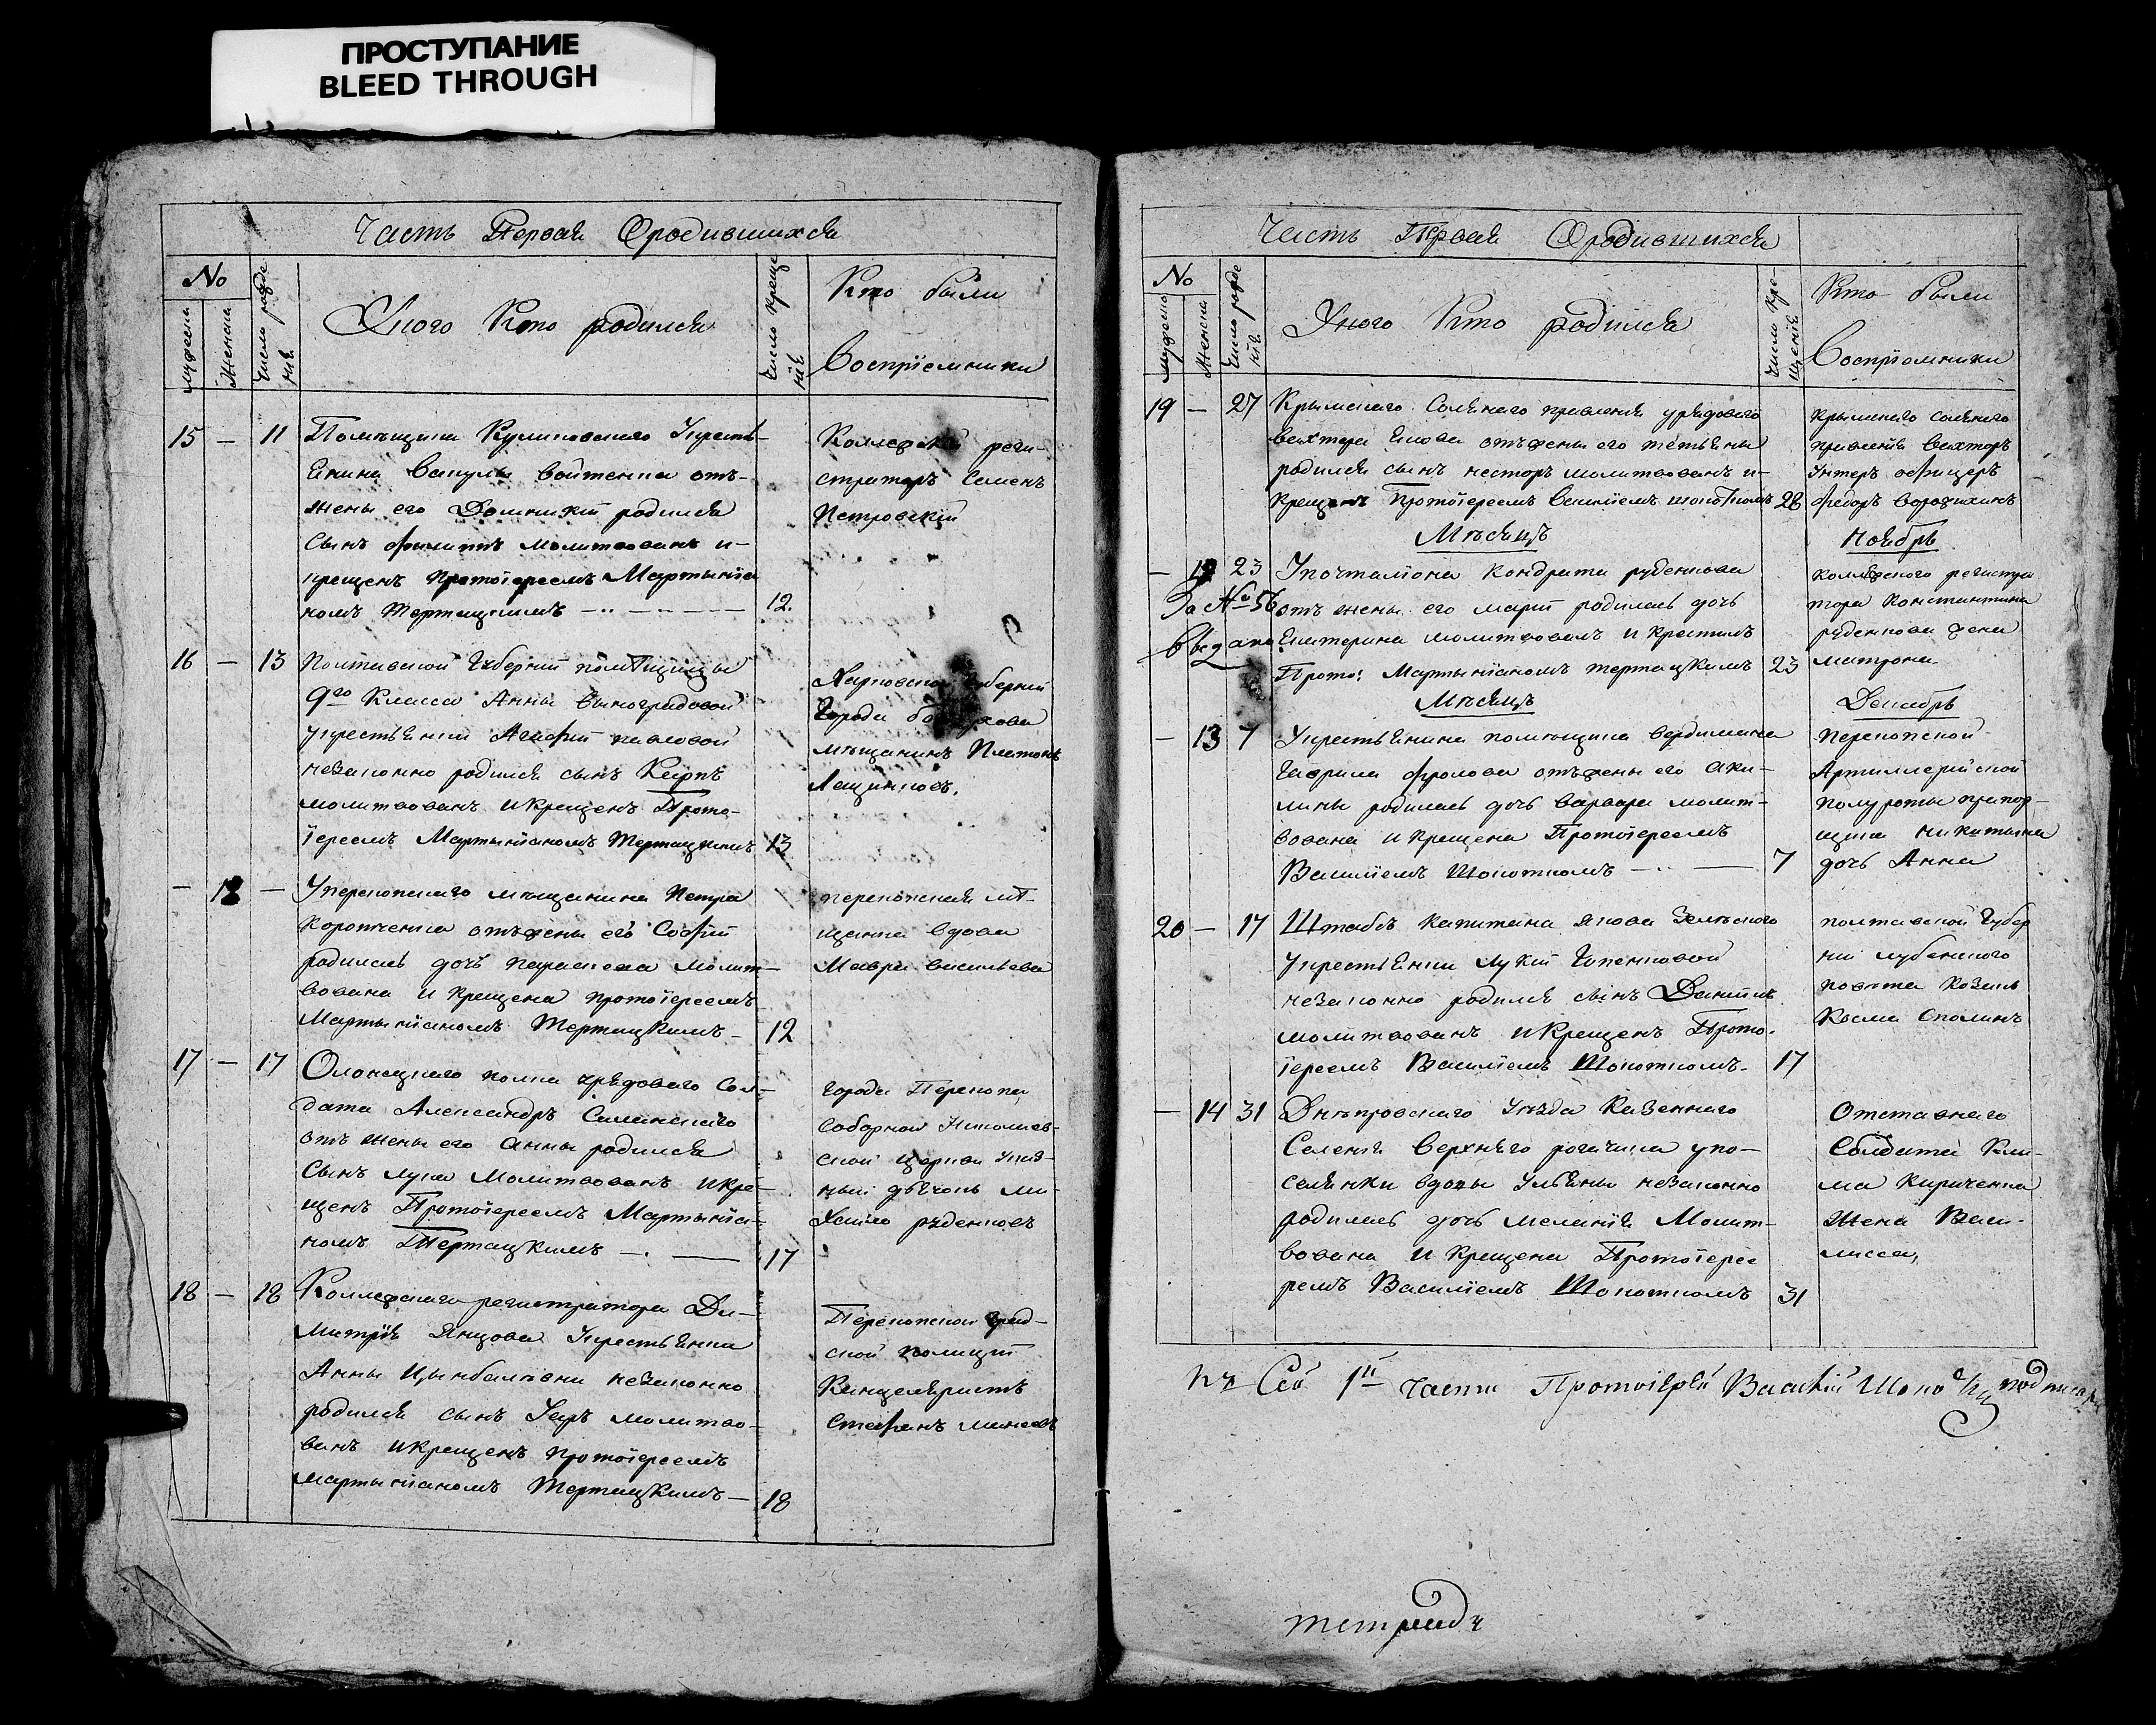 ПРОСТУПАНИЕ
BLEED THROUGH
Часть Первая Ородившихся
No
мужеска
женска
Число рожденія
Укого Кто родился
Число Крещенія
Кто были
Воспріемники
15 — 11 Помѣщика Куликовскаго Укрестьянина Вакулы Войтенка отъ
жены его Домникіи родился
сынъ Филиппъ молитвованъ и
крещенъ Протоіереемъ Мартыніа
номъ Тертацкимъ 12.
Коллежскій реги-
страторъ Семенъ
Петровскій
16 — 13 Полтавской Губерніи помѣщицы
9го Класса Анны Виноградовой
укрестьянки Агафіи павловой
незаконно родился сынъ Карпъ
молитвованъ и крещенъ Прото-
іереемъ Мартыніаномъ Тертацкимъ 13
Харковской Губерніи
Города
мѣщанинъ Платонъ
Лащинковъ.
— 12 — Уперекопскаго мѣщанина Петра
Коротченка отъжены его Софіи
родилась дочь параскева молит-
вована и крещена протоіереемъ
Мартыніаномъ Тертацкимъ — 12
перекопская мѣ-
щанка вдова
Мавра васильева
17 — 17 Олонецкаго полка урядоваго Сол-
дата Александръ Силинскаго
отъ жены его Анны родился
Сынъ лука Молитвованъ икре-
щенъ Протоіереемъ Мартыніа-
номъ Тертацкимъ 17
города Перекопа
Соборной Николаев-
ской церкви
ный дьячокъ Ми-
хайло руденковъ
18 — 18 Коллежскаго регистратора Ди-
митрія Янцова Укрестьянки
Анны Цымбаловны незаконно
родился сынъ молитво-
ванъ икрещенъ протоіереемъ
Мартыніаномъ Тертацкимъ — 18
Перекопской град-
ской полиціи
Канцеляристъ
Стефанъ минаевъ
Часть Первая Ородившихся
No
мужеска
женска
Число рожденія
Укого Кто родился
Число Крещенія
Кто были
Воспріемники
19 — 27 Крымскаго Солянаго правленія урядоваго
вахтера отъжены его тетьяны
родился сынъ несторъ молитвованъ и
Крещенъ Протоіереемъ Василіемъ Шокоткомъ 28
крымскаго солянаго
правленія вахтеръ
Унтеръ офицеръ
Федоръ ворожихинъ
Мѣсяцъ Ноябрь
— 12 23 Упочталіона Кондрата руденкова
За № 56 отъ жены его маріи родилась дочь
выдана Екатерина молитвовалъ и крестилъ
Прото: Мартыніаномъ тертацкимъ 23
коллежского регистра
тора Константина
руденкова жена
матрона
Мѣсяцъ Декабрь
— 13 7 Укрестьянина помѣщика вердимана
Гаврила Фролова отъжены его аки-
лины родилась дочь варвара молит-
вована и крещена Протоіереемъ
Василіемъ Шокоткомъ 7
Перекопской
Артиллерійской
полуроты прапор-
щика Никитина
дочь Анна
20 — 17 Штабсъ Капитана Якова Зелѣнского
укрестьянки лукіи
незаконно родился сынъ Даніилъ
молитвованъ и Крещенъ Прото-
іереемъ Василіемъ Шокоткомъ 17
полтавской Губер
ніи лубенского
повѣта Козакъ
Косма
— 14 31 Днѣпровскаго Уѣзда Казеннаго
Селенія верхняго рогачика упо-
селянки вдовы Ульяны незаконно
родилась дочь меланія Молит-
вована и Крещена Протоіере
реемъ Василіемъ Шокоткомъ 31
Отставнаго
Солдата Кли-
ма Кириченка
Жена Васи-
лисса,
Къ Сей 1й части Протоіерей Василій
тетрадь